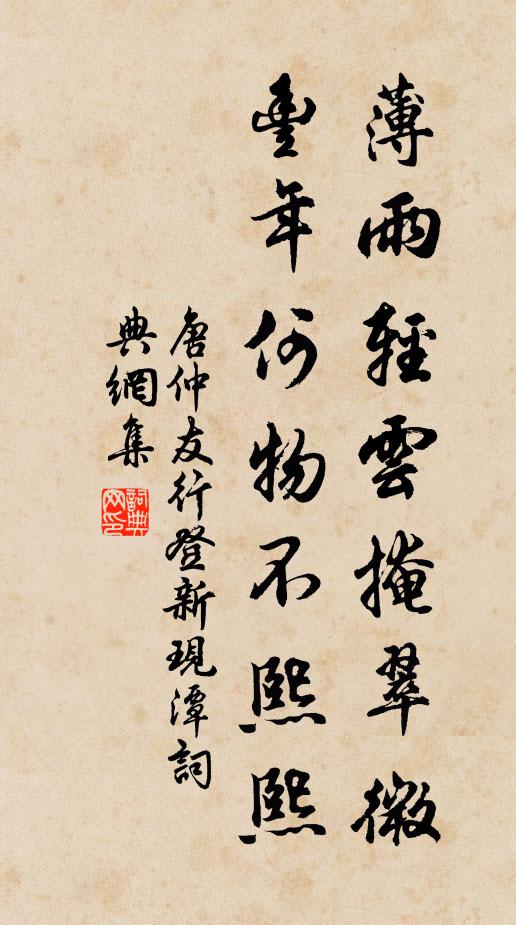 薄雨輕雲掩翠微
豊年何物不熙熙
唐仲友行登新現潭詞
典網集
詞典網印